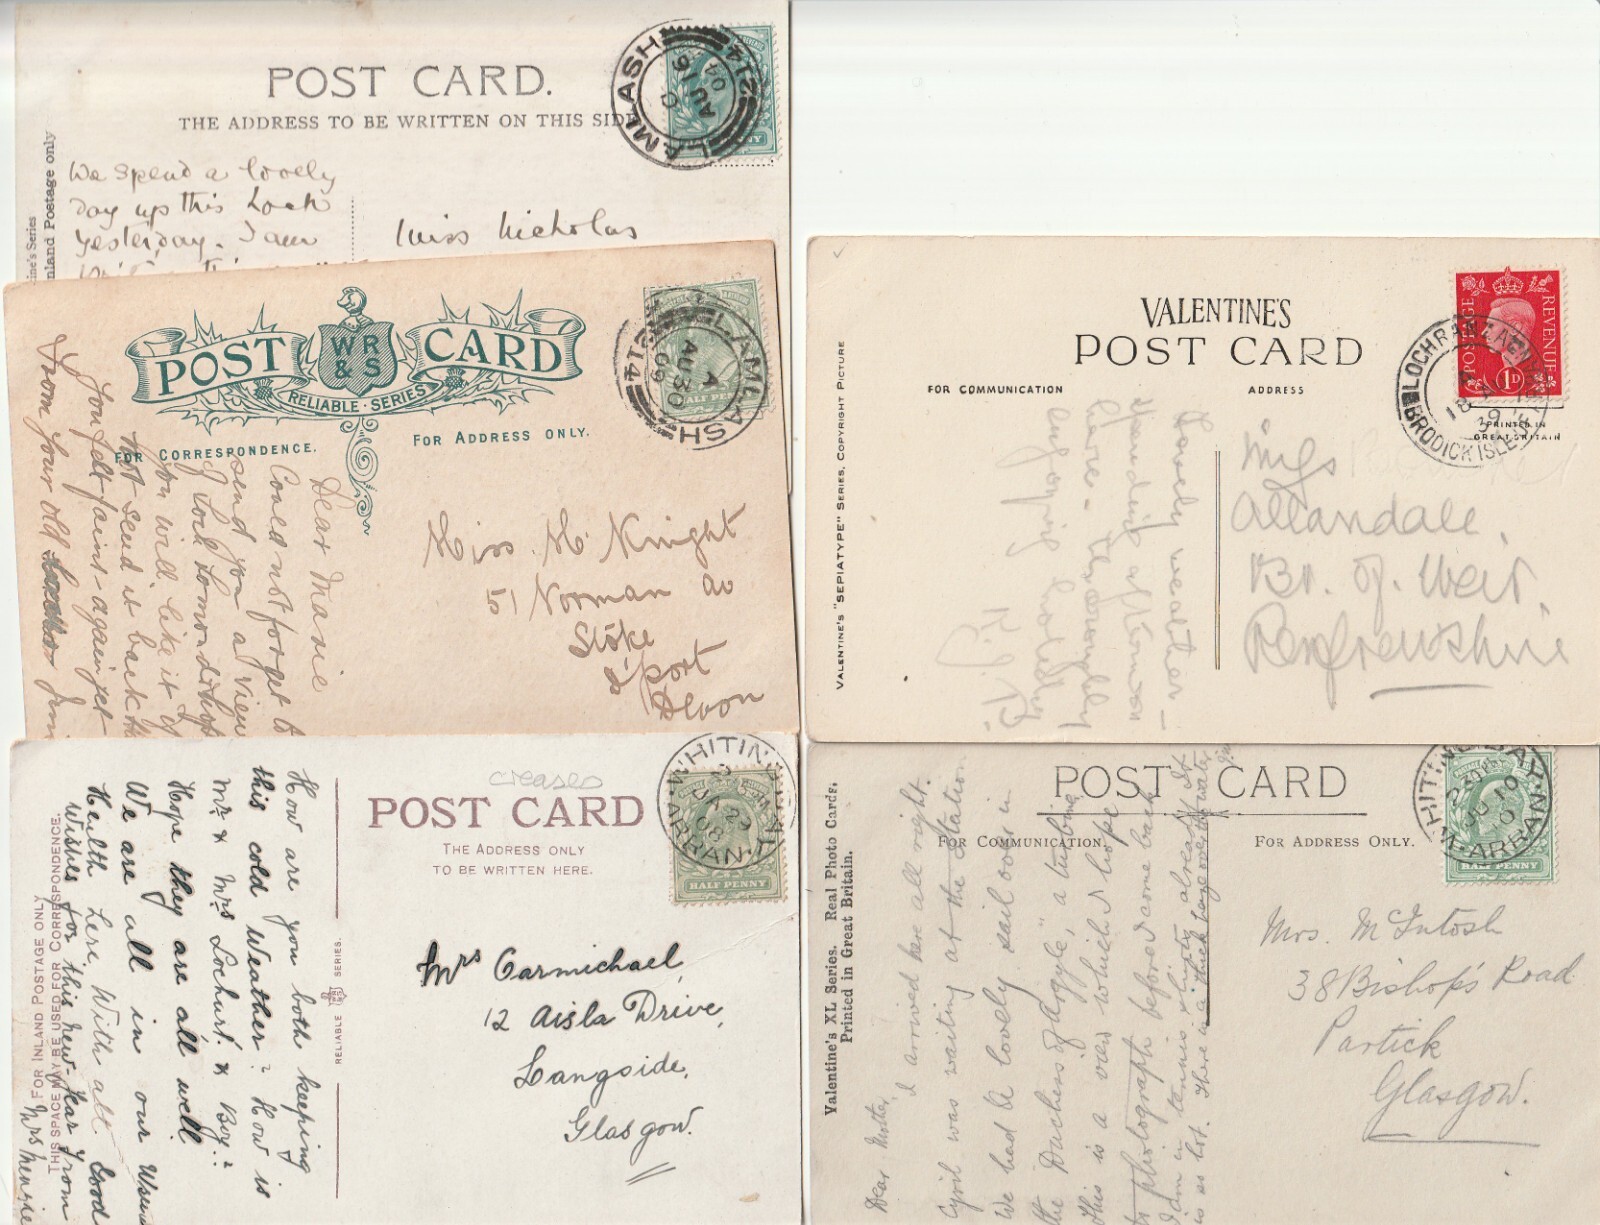 POST CARD.
THE ADDRESS TO BE WRITTEN ON THIS SIDE
Inland Postage only
We spend a lovely
day up this Loch
yesterday. I am
Miss Nicholas
LAMLASH
AU 16
04
214
POST CARD
WR
& S
RELIABLE SERIES
FOR CORRESPONDENCE.
FOR ADDRESS ONLY.
LAMLASH
A
AU 30
09
214
HALF PENNY
Dear Maisie
Could not forget to
send you a view
of Loch Lomond & hope
you will like it &
not send it back the
You felt faint again yet
From your old
Miss Mc Knight
51 Norman av
Stoke
D'port
Devon
creases
POST CARD
THE ADDRESS ONLY
TO BE WRITTEN HERE.
WHITING
ARRAN
08
HALF PENNY
FOR INLAND POSTAGE ONLY
THIS SPACE MAY BE USED FOR CORRESPONDENCE.
RELIABLE SERIES.
How are you both keeping
this cold Weather? How is
Mr & Mrs Lochurst & Boy?
Hope they are all well
We are all in our Usual
Health here. With all Good
Wishes for this New Year from
Mrs Menzie
Mrs Carmichael,
12 Ailsa Drive,
Langside,
Glasgow.
VALENTINE'S
POST CARD
FOR COMMUNICATION
ADDRESS
VALENTINE'S "SEPIATYPE" SERIES, COPYRIGHT PICTURE
POSTAGE REVENUE
1D
LOCHRANZA
BRODICK ISLE
18
39
PRINTED IN
GREAT BRITAIN
Lovely weather -
here - thoroughly
enjoying holiday
Allandale,
Br. of Weir,
Renfrewshire
POST CARD
FOR COMMUNICATION.
FOR ADDRESS ONLY.
Valentine's XL Series. Real Photo Cards.
Printed in Great Britain.
WHITING BAY
ARRAN
JU 10
HALF PENNY
Dear Mother,
I arrived here all right.
Cyril was waiting at the station
We had a lovely sail over in
the "Duchess of Argyle," a turbine
This is a view which I hope
to photograph before I come back
I am in tennis shirts already. It
is so hot. There is a thick haze over the water
Mrs. McIntosh
38 Bishop's Road
Partick
Glasgow.